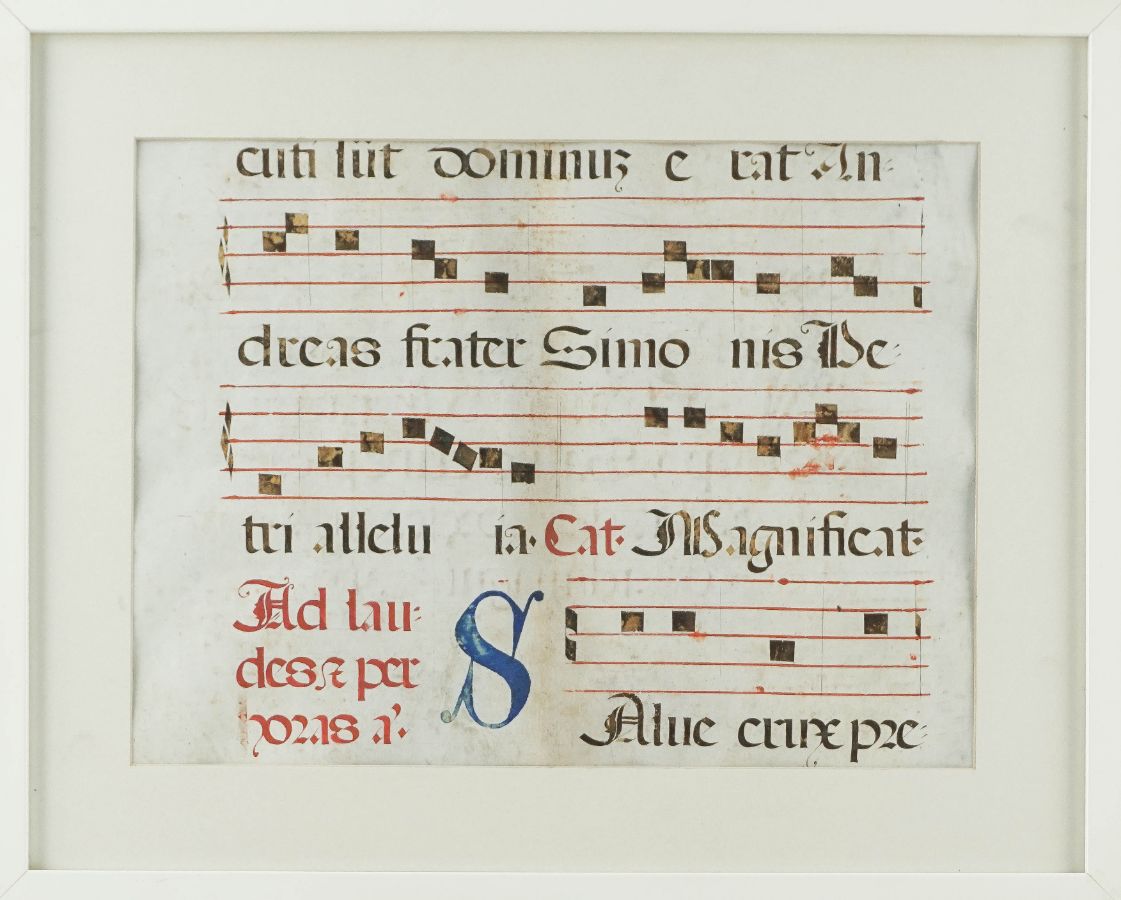 cuti sūt dominuz e rat An-
dreas frater Simo nis Pe-
tri allelu ia. Cat. Magnificat.
Ad lau-
des ⁊ per
horas a'.
S Alue crux pre-